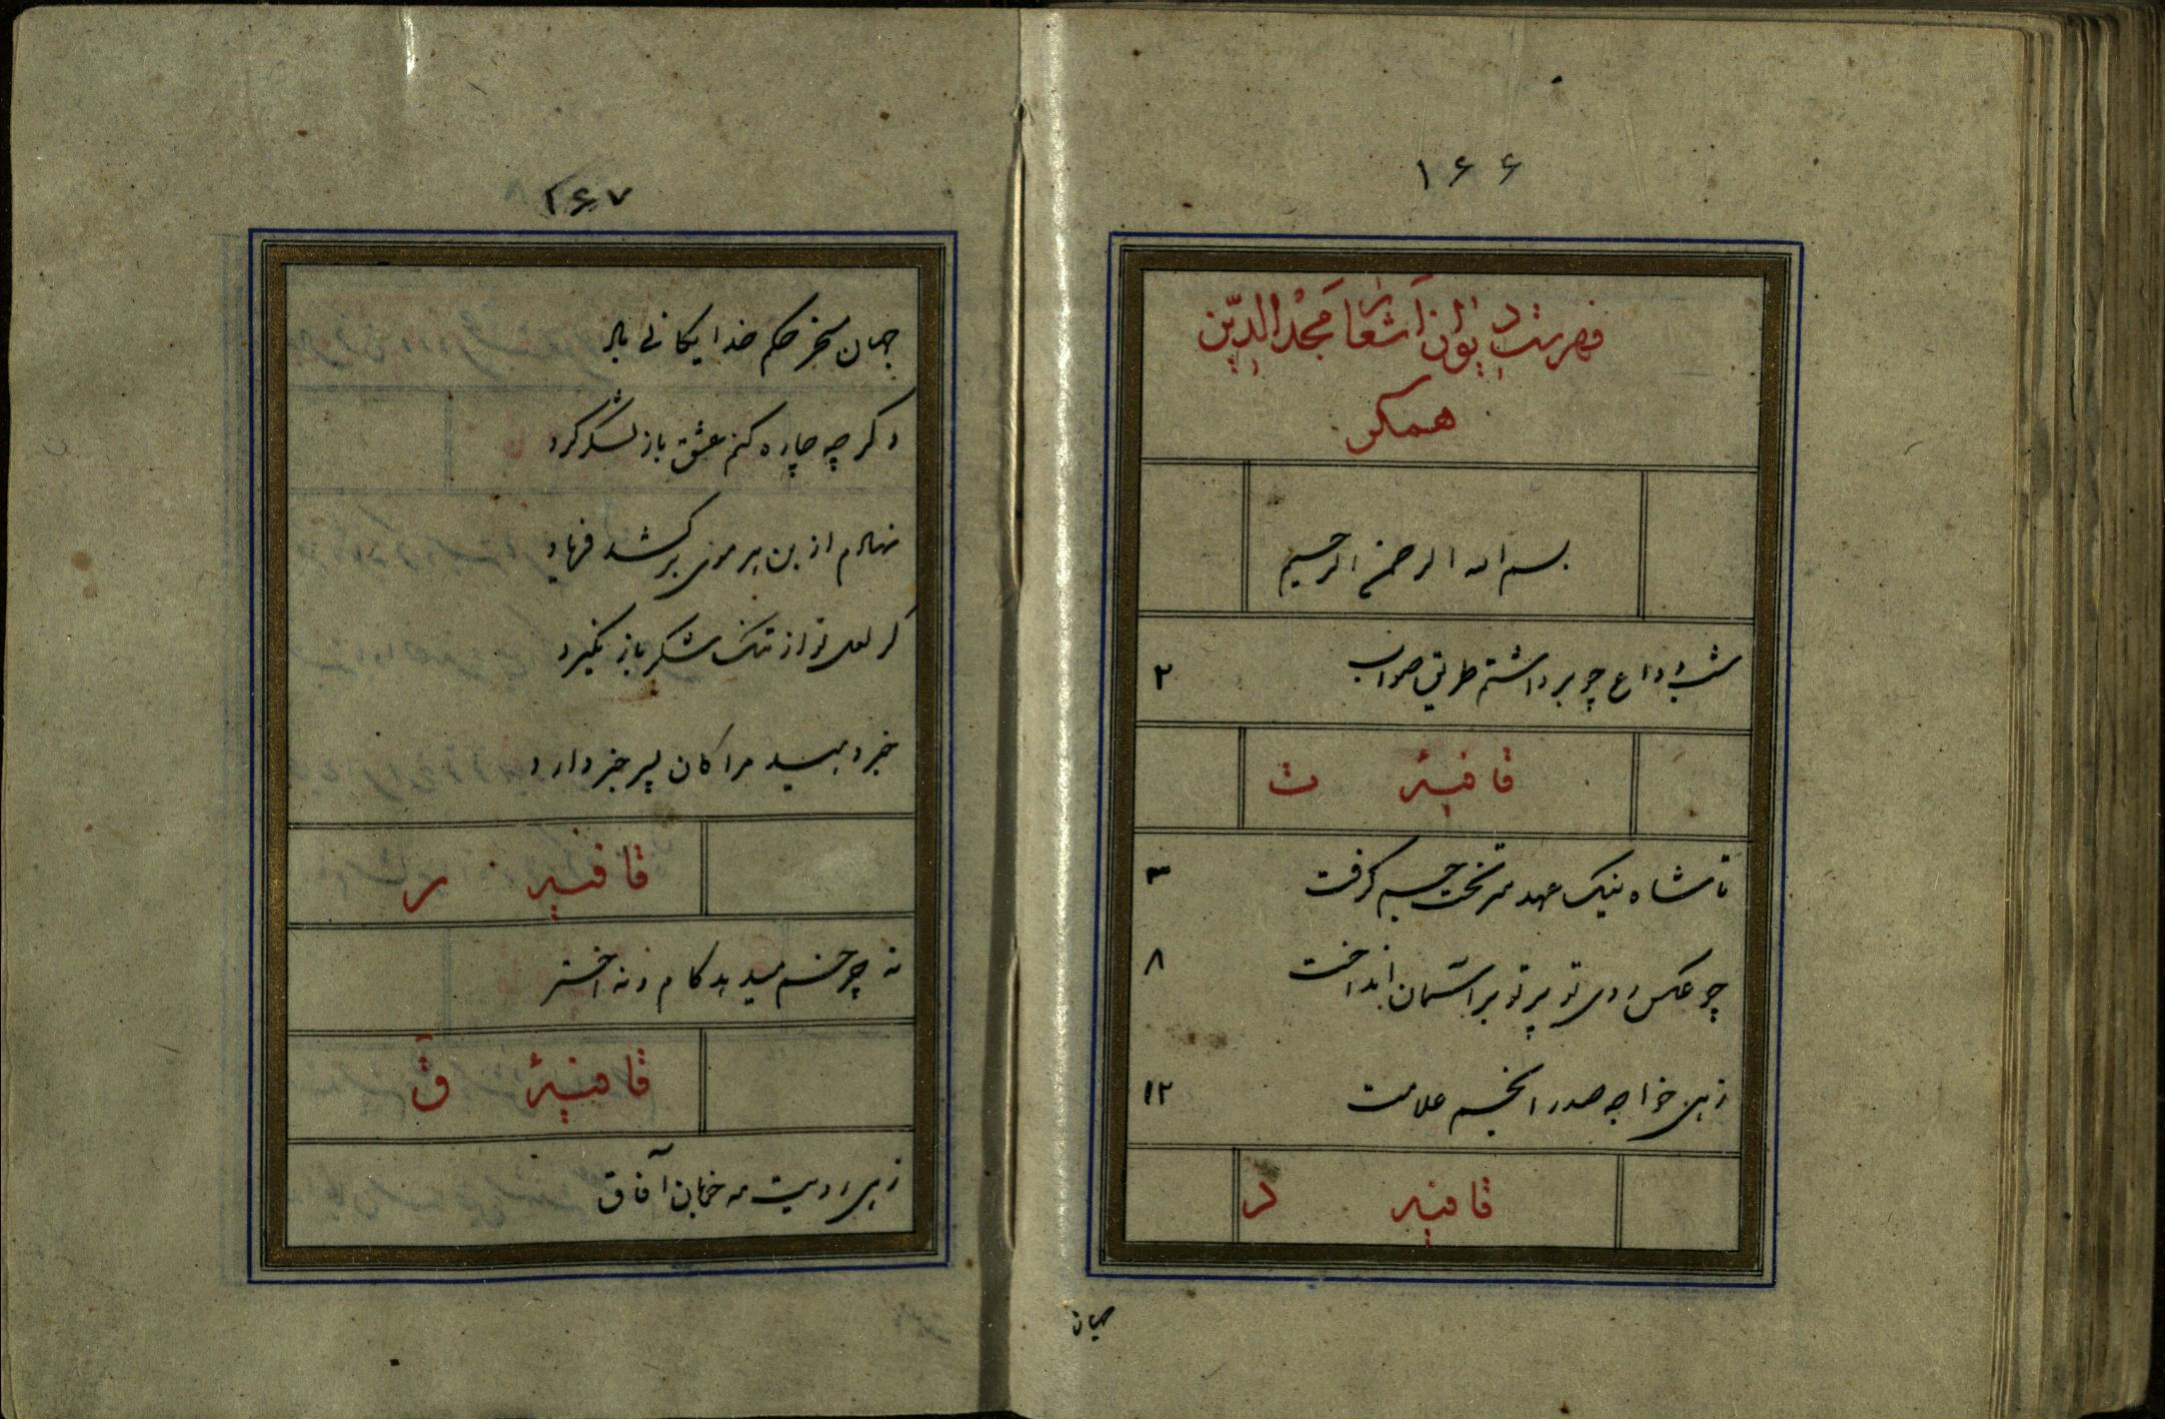 ۱۶۶
فهرست دیوان اشعار مجد الدین
همکر
بسم الله الرحمن الرحیم
شب وداع چو برداشتم طریق صواب ۲
قافیهٔ ت
تا شاه نیک عهد سر تخت جم گرفت ۳
چو عکس روی تو پرتو بر آسمان انداخت ۸
زهی خواجه صدر انجم علامت ۱۲
قافیه د
جهان
۱۶۷
جهان مسخر حکم خدایکانی باد
دگر چه چاره کنم عشق باز لشکر کرد
نهادم از بن هر موی برکشد فریاد
گر لعل تو از تنک شکر باز نگیرد
خبر دهید مرا کان پسر خبر دارد
قافیه ر
نه چرخم میدهد کام و نه اختر
قافیهٔ ق
زهی رویت مه خوبان آفاق